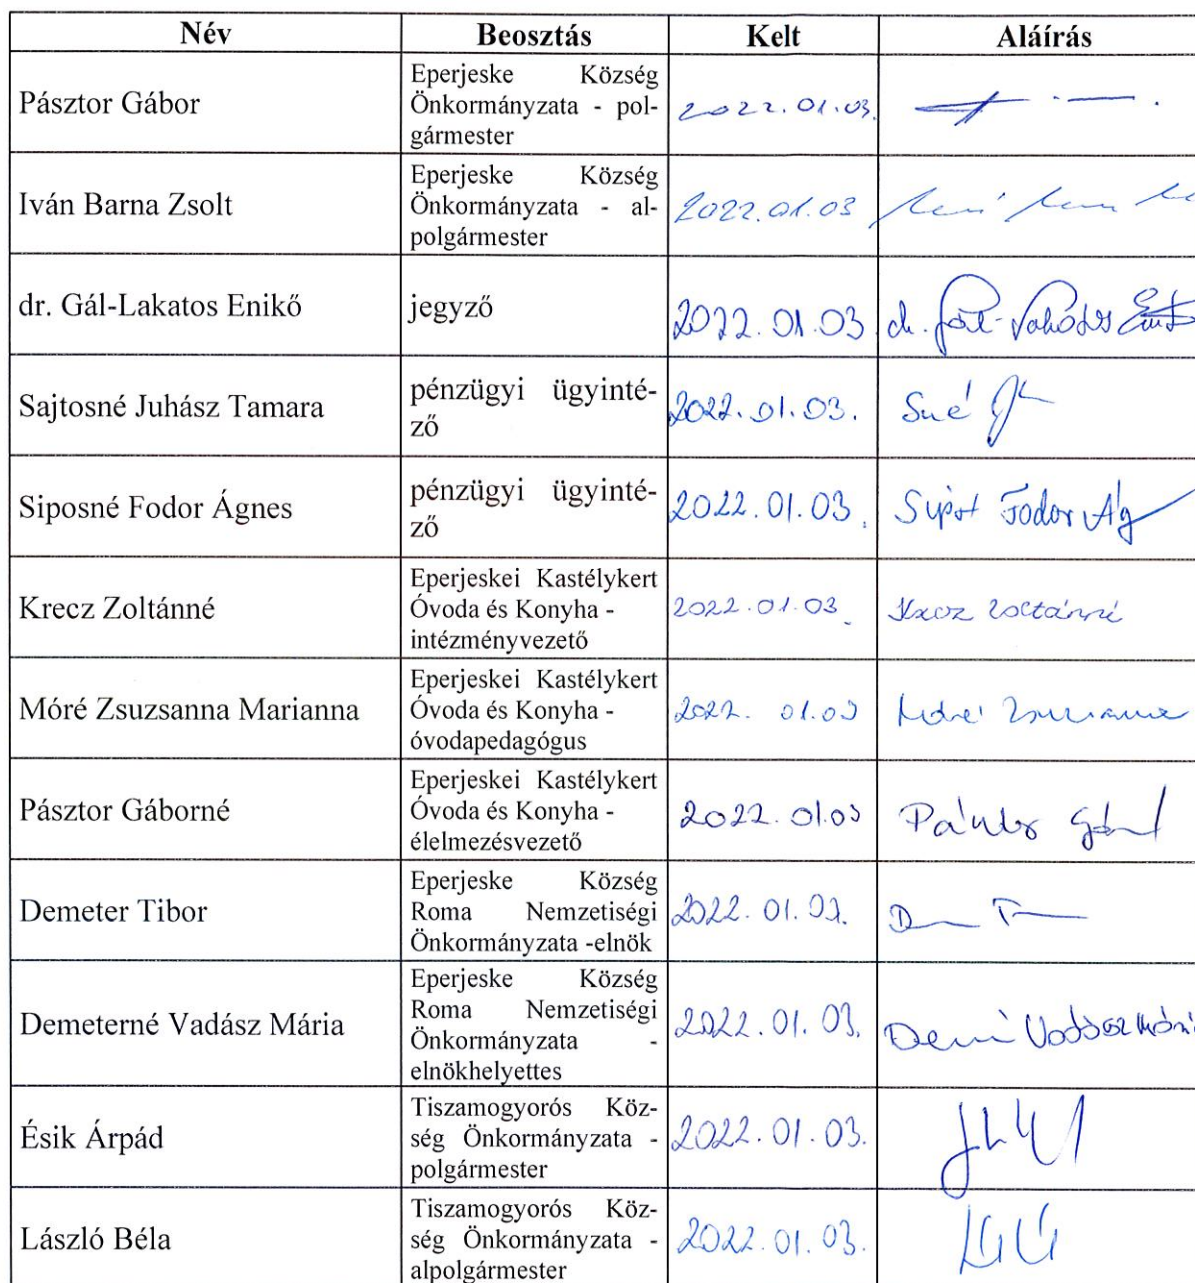 Név Beosztás Kelt Aláírás
Pásztor Gábor
Eperjeske Község
Önkormányzata - pol-
gármester
2022.01.03.
Iván Barna Zsolt
Eperjeske Község
Önkormányzata - al-
polgármester
2022.01.03
dr. Gál-Lakatos Enikő
jegyző
2022.01.03
dr. Gál-Lakatos Enikő
Sajtosné Juhász Tamara
pénzügyi ügyinté-
ző
2022.01.03.
Siposné Fodor Ágnes
pénzügyi ügyinté-
ző
2022.01.03.
Fodor Ág
Krecz Zoltánné
Eperjeskei Kastélykert
Óvoda és Konyha -
intézményvezető
2022.01.03.
Krecz Zoltánné
Móré Zsuzsanna Marianna
Eperjeskei Kastélykert
Óvoda és Konyha -
óvodapedagógus
2022. 01.03
Pásztor Gáborné
Eperjeskei Kastélykert
Óvoda és Konyha -
élelmezésvezető
2022.01.03
Demeter Tibor
Eperjeske Község
Roma Nemzetiségi
Önkormányzata -elnök
2022.01.03.
Demeterné Vadász Mária
Eperjeske Község
Roma Nemzetiségi
Önkormányzata -
elnökhelyettes
2022.01.03.
Vadász Mária
Ésik Árpád
Tiszamogyorós Köz-
ség Önkormányzata -
polgármester
2022.01.03.
László Béla
Tiszamogyorós Köz-
ség Önkormányzata -
alpolgármester
2022.01.03.